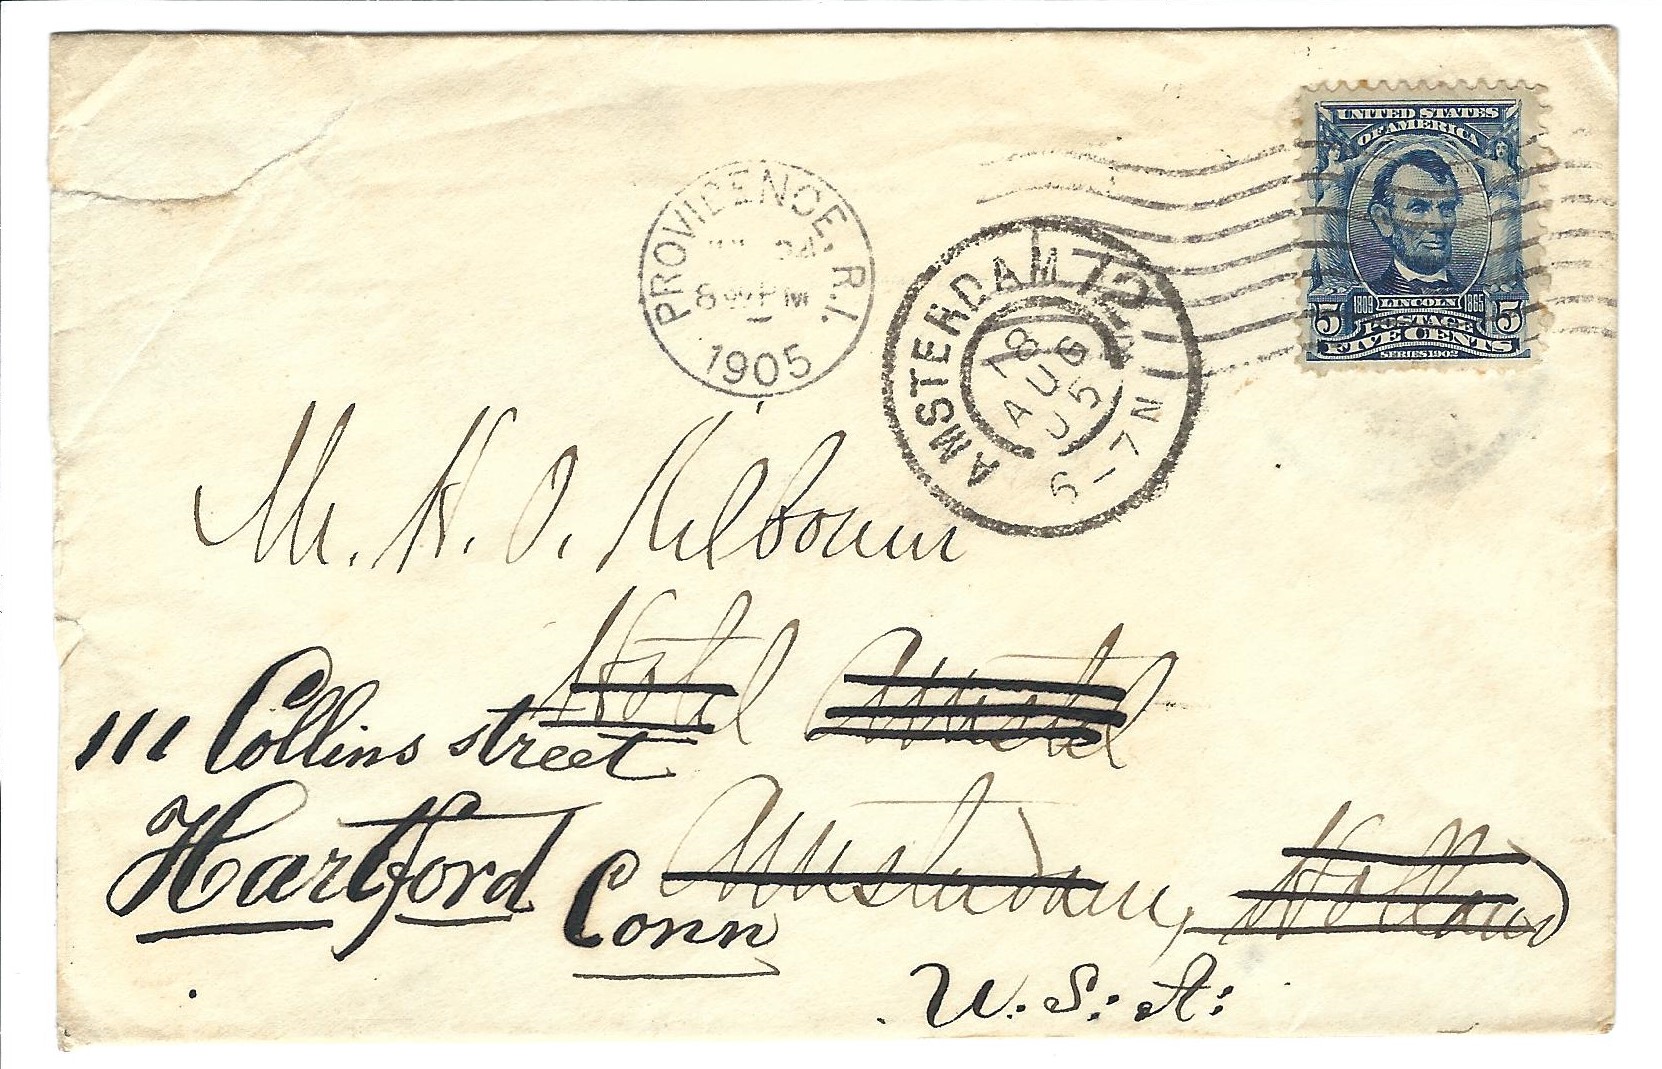 UNITED STATES
OF AMERICA
1809 LINCOLN 1865
5 POSTAGE 5
FIVE CENTS
SERIES 1902
PROVIDENCE, R.I.
8 PM
1905
AMSTERDAM 12
AUG
05
6-7N
Mr. H. O. Kilbourn
Hotel Amstel
111 Collins street
Amsterdam, Holland
Hartford
Conn
U.S.A.